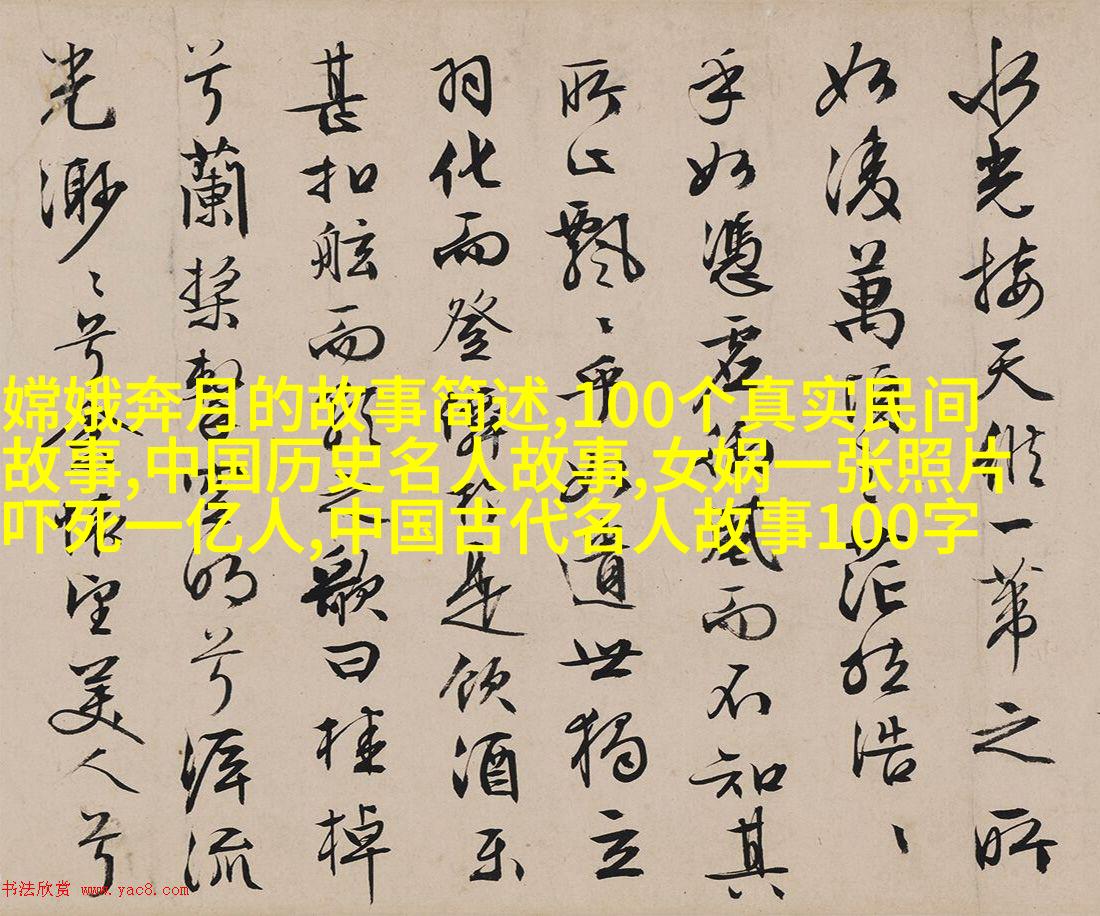 水光接天縱一葦之所
如凌萬頃之茫然浩、
乎如憑虛御風而不知其
所止飄、乎如遺世獨立
羽化而登僊於是飲酒樂
甚扣舷而歌之歌曰桂棹
兮蘭槳擊空明兮泝流
光渺、兮余懷望美人兮
嫦娥奔月的故事简述,100个真实民间
故事,中国历史名人故事,女娲一张照片
吓死一亿人,中国古代名人故事100字
书法欣赏 www.yac8.com